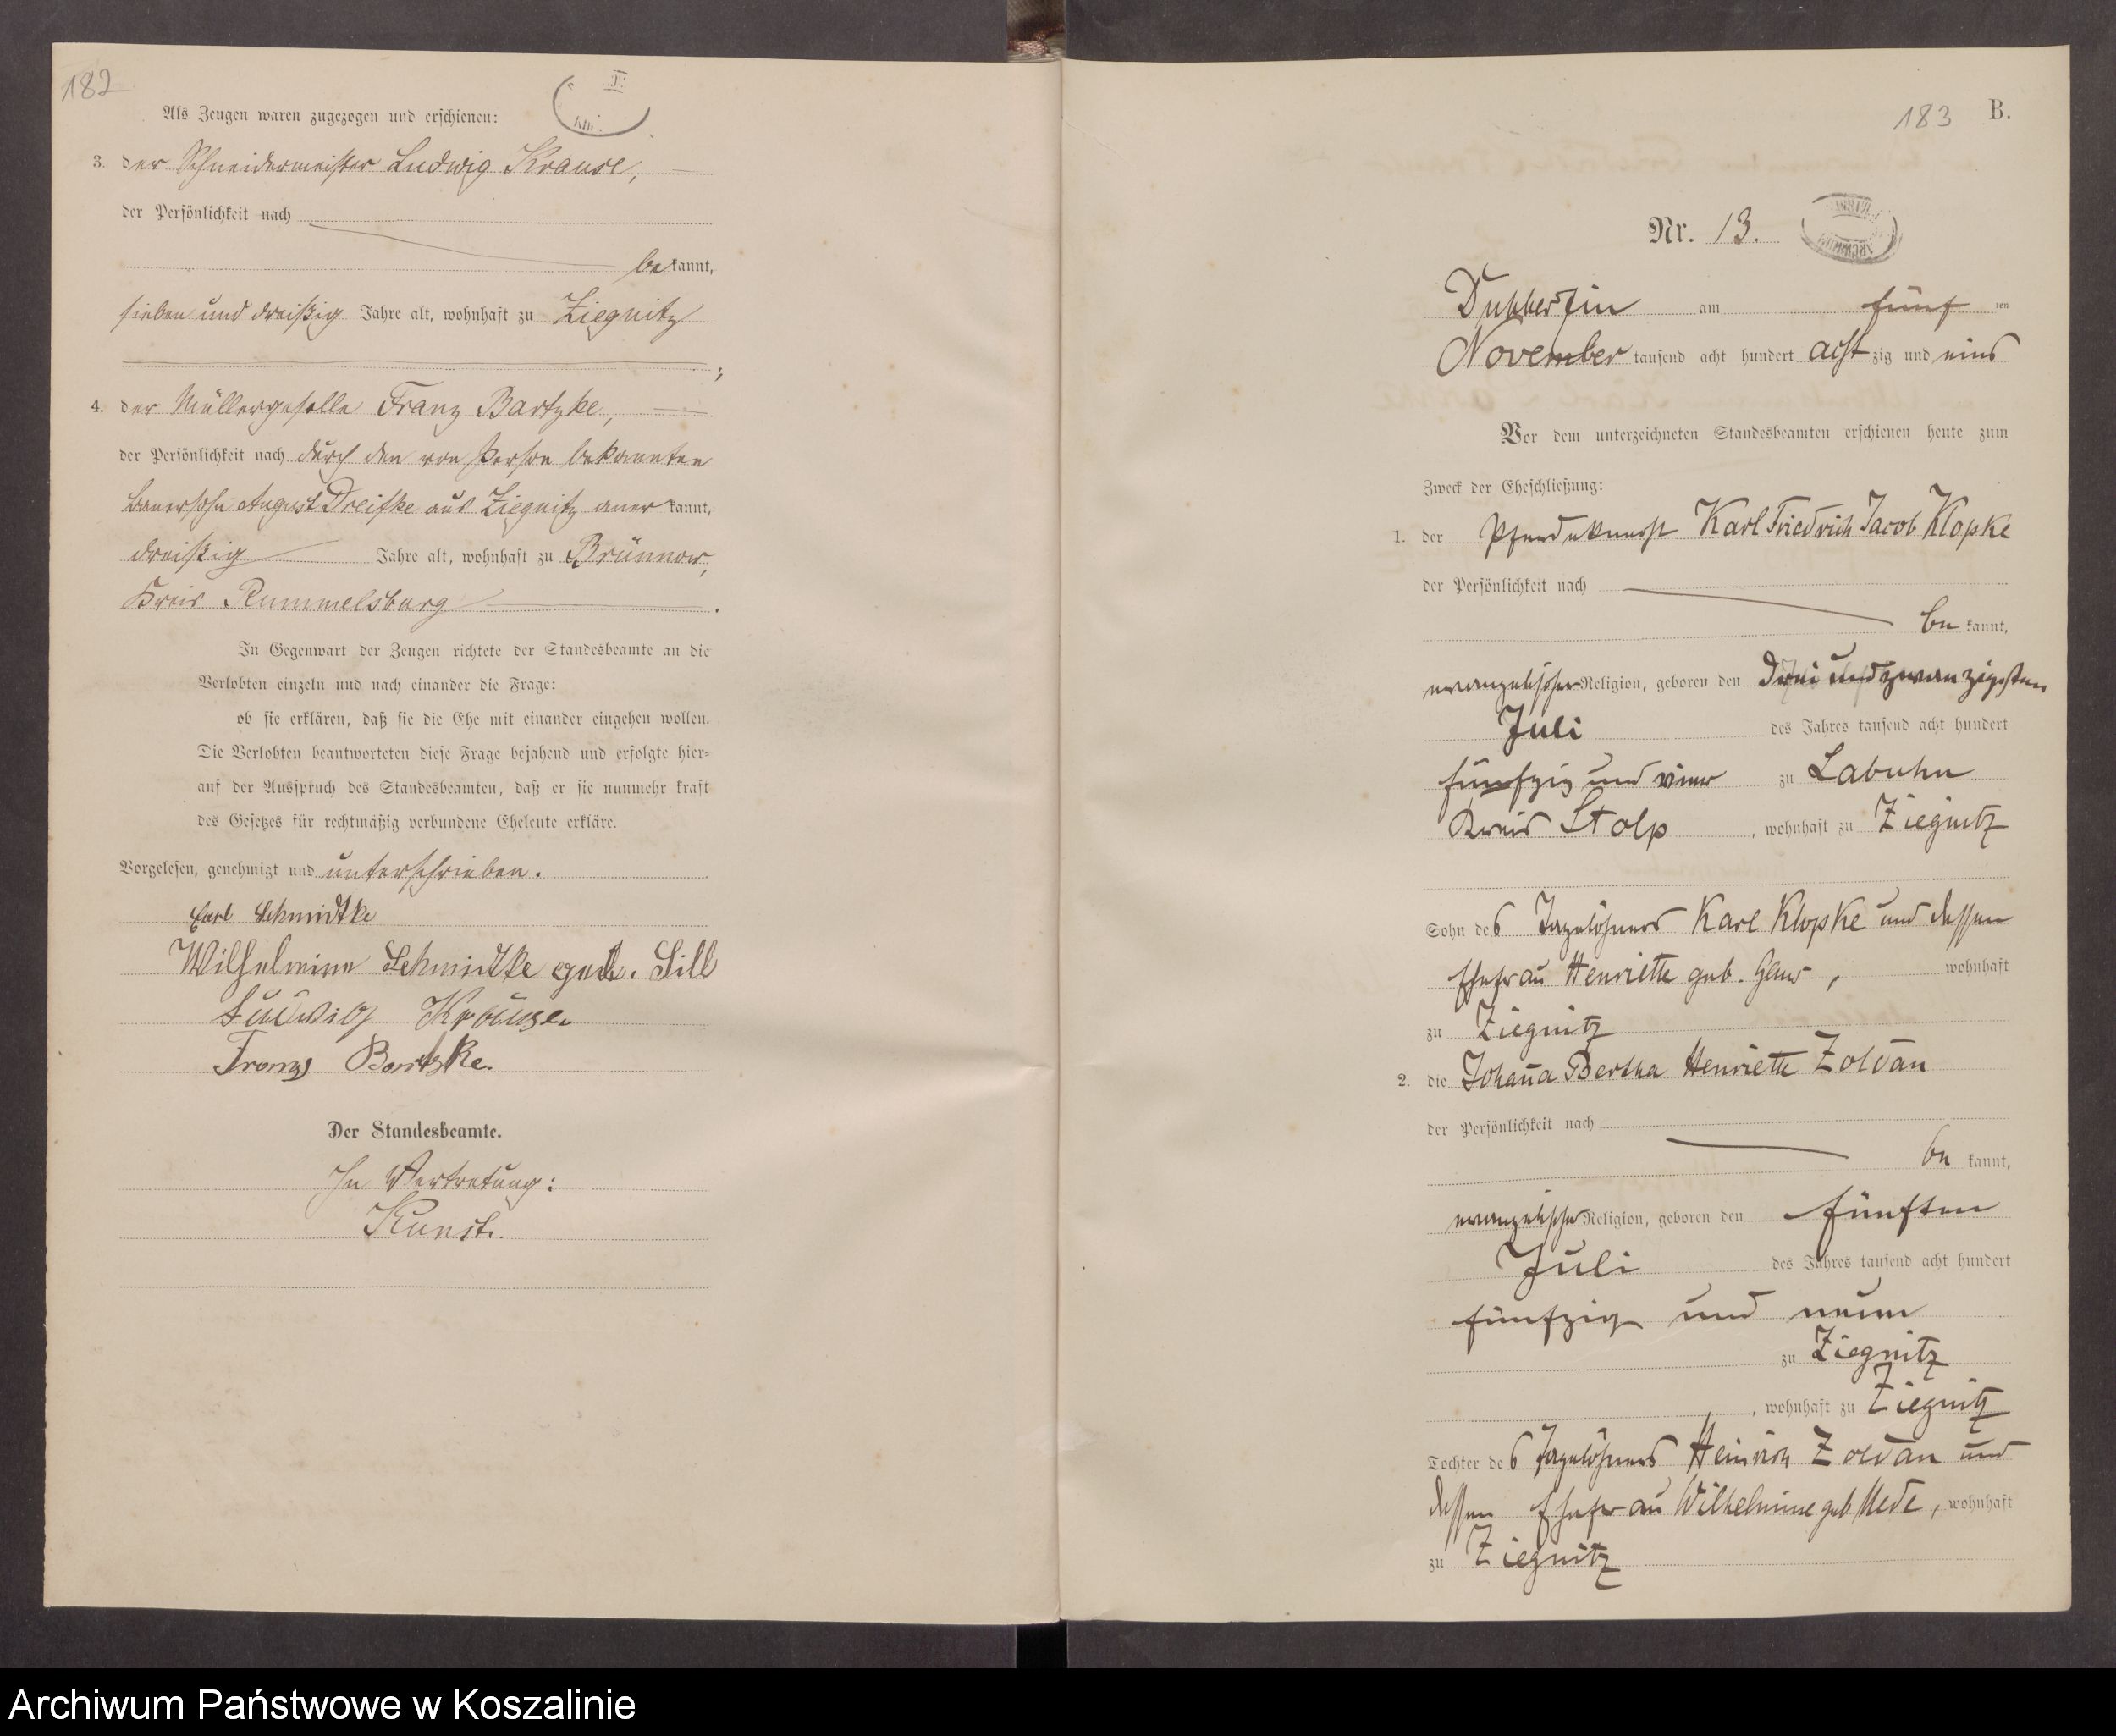 182
Als Zeugen waren zugezogen und erschienen:
3. der Schneidermeister Ludwig Krause,
der Persönlichkeit nach
bekannt,
sieben und dreißig Jahre alt, wohnhaft zu Ziegnitz
;
4. der Müllergeselle Franz Bartzke,
der Persönlichkeit nach durch den von Person bekannten
Bauersohn August Dreifke aus Ziegnitz anerkannt,
dreißig Jahre alt, wohnhaft zu Brünnow,
Kreis Rummelsburg.
In Gegenwart der Zeugen richtete der Standesbeamte an die
Verlobten einzeln und nach einander die Frage:
ob sie erklären, daß sie die Ehe mit einander eingehen wollen.
Die Verlobten beantworteten diese Frage bejahend und erfolgte hier-
auf der Ausspruch des Standesbeamten, daß er sie nunmehr kraft
des Gesetzes für rechtmäßig verbundene Eheleute erkläre.
Vorgelesen, genehmigt und unterschrieben.
Carl Schmidtke
Wilhelmine Schmidtke geb. Sill
Ludwig Krause
Franz Bartzke.
Der Standesbeamte.
In Vertretung:
Kunst.
183 B.
Nr. 13.
Dubberzin am fünften
November tausend acht hundert achtzig und eins
Vor dem unterzeichneten Standesbeamten erschienen heute zum
Zweck der Eheschließung:
1. der Pferdeknecht Karl Friedrich Jacob Klopke
der Persönlichkeit nach
bekannt,
evangelischer Religion, geboren den drei und zwanzigsten
Juli des Jahres tausend acht hundert
fünfzig und vier zu Labuhn
Kreis Stolp, wohnhaft zu Ziegnitz
Sohn des Tagelöhners Karl Klopke und dessen
Ehefrau Henriette geb., wohnhaft
zu Ziegnitz
2. die Johaña Bertha Henriette Zoldan
der Persönlichkeit nach
bekannt,
evangelischer Religion, geboren den fünften
Juli des Jahres tausend acht hundert
fünfzig und neun
zu Ziegnitz
, wohnhaft zu Ziegnitz
Tochter des Tagelöhners Heinrich Zoldan und
dessen Ehefrau Wilhelmine geb, wohnhaft
zu Ziegnitz
Archiwum Państwowe w Koszalinie